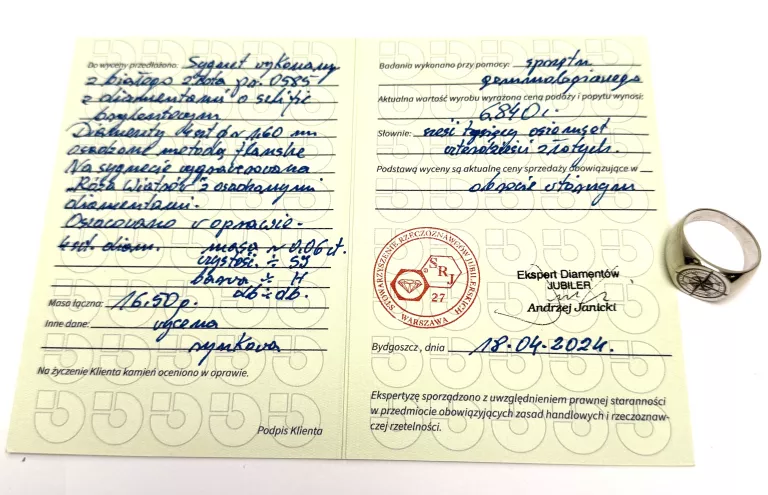 Do wyceny przedłożono: Sygnet wykonany
z białego złota pr. 0585
z diamentami o szlifie
brylantowym
Diamenty 4szt ϕ ~ 1,60 mm
osadzone metodą
Na sygnecie wygrawerowana
„Róża Wiatrów" z osadzonymi
diamentami.
Oszacowano w oprawie.
4szt. diam. masa ~ 0,06 ct.
czystość ÷ SJ
barwa ÷ H
db ÷ db.
Masa łączna: 16,50 g.
Inne dane: wycena
rynkowa
Na życzenie Klienta kamień oceniono w oprawie.
Podpis Klienta
Badania wykonano przy pomocy: sprzętu
gemmologicznego
Aktualna wartość wyrobu wyrażona ceną podaży i popytu wynosi:
6.840
Słownie: sześć tysięcy osiemset
czterdzieści złotych.
Podstawą wyceny są aktualne ceny sprzedaży obowiązujące w
obrocie wtórnym
STOWARZYSZENIE RZECZOZNAWCÓW JUBILERSKICH
SRJ
27
WARSZAWA
Ekspert Diamentów
JUBILER
Andrzej Janicki
Bydgoszcz, dnia 18.04.2024.
Ekspertyzę sporządzono z uwzględnieniem prawnej staranności
w przedmiocie obowiązujących zasad handlowych i rzeczoznaw-
czej rzetelności.